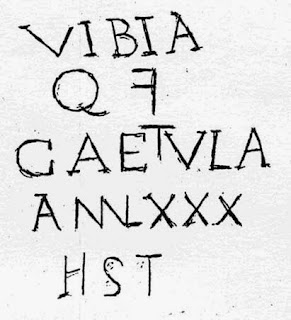 VIBIA
Q F
GAETVLA
ANNLXXX
HST